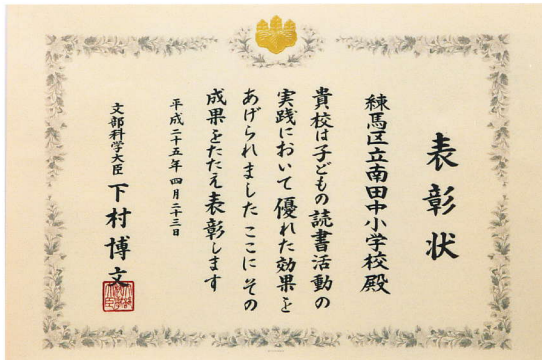 表彰状
練馬区立南田中小学校殿
貴校は子どもの読書活動の
実践において優れた効果を
あげられました ここに その
成果をたたえ表彰します
平成二十五年四月二十三日
文部科学大臣 下村博文